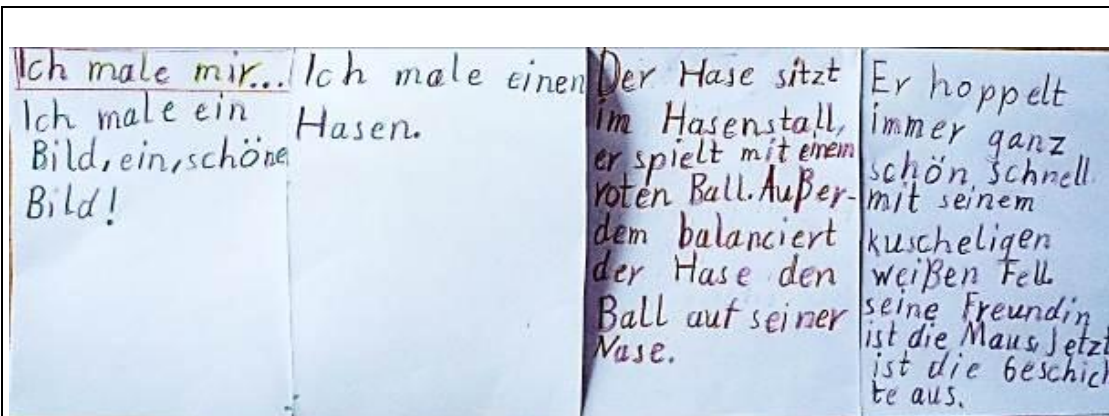 Ich male mir...
Ich male ein
Bild, ein, schöne
Bild!
Ich male einen
Hasen.
Der Hase sitzt
im Hasenstall,
er spielt mit einem
roten Ball. Außer-
dem balanciert
der Hase den
Ball auf seiner
Nase.
Er hoppelt
immer ganz
schön schnell
mit seinem
kuscheligen
weißen Fell.
seine Freundin
ist die Maus, Jetzt
ist die Geschich
te aus.